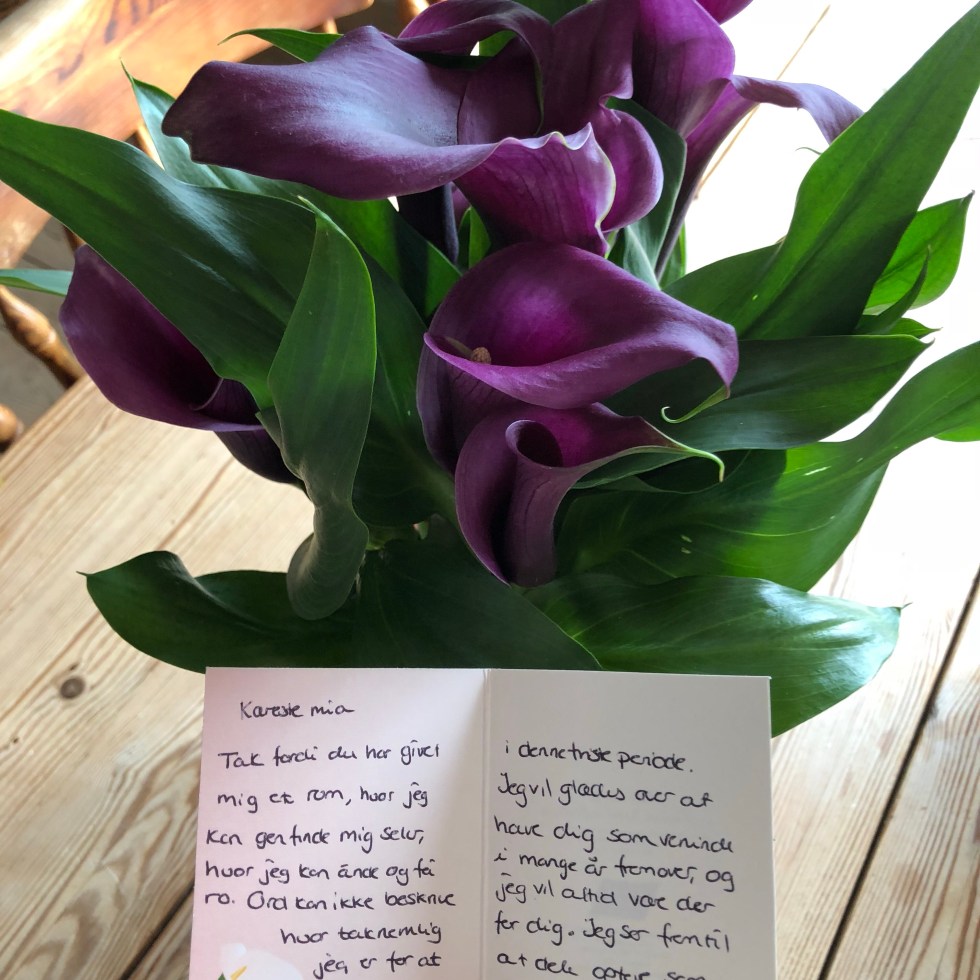 Kæreste mia
Tak fordi du har givet
mig et rum, hvor jeg
kan genfinde mig selv,
hvor jeg kan ånde og få
ro. Ord kan ikke beskrive
hvor taknemlig
jeg er for at
i denne triste periode.
Jeg vil glædes over at
have dig som veninde
i mange år fremover, og
jeg vil altid være der
for dig. Jeg ser frem til
at dele